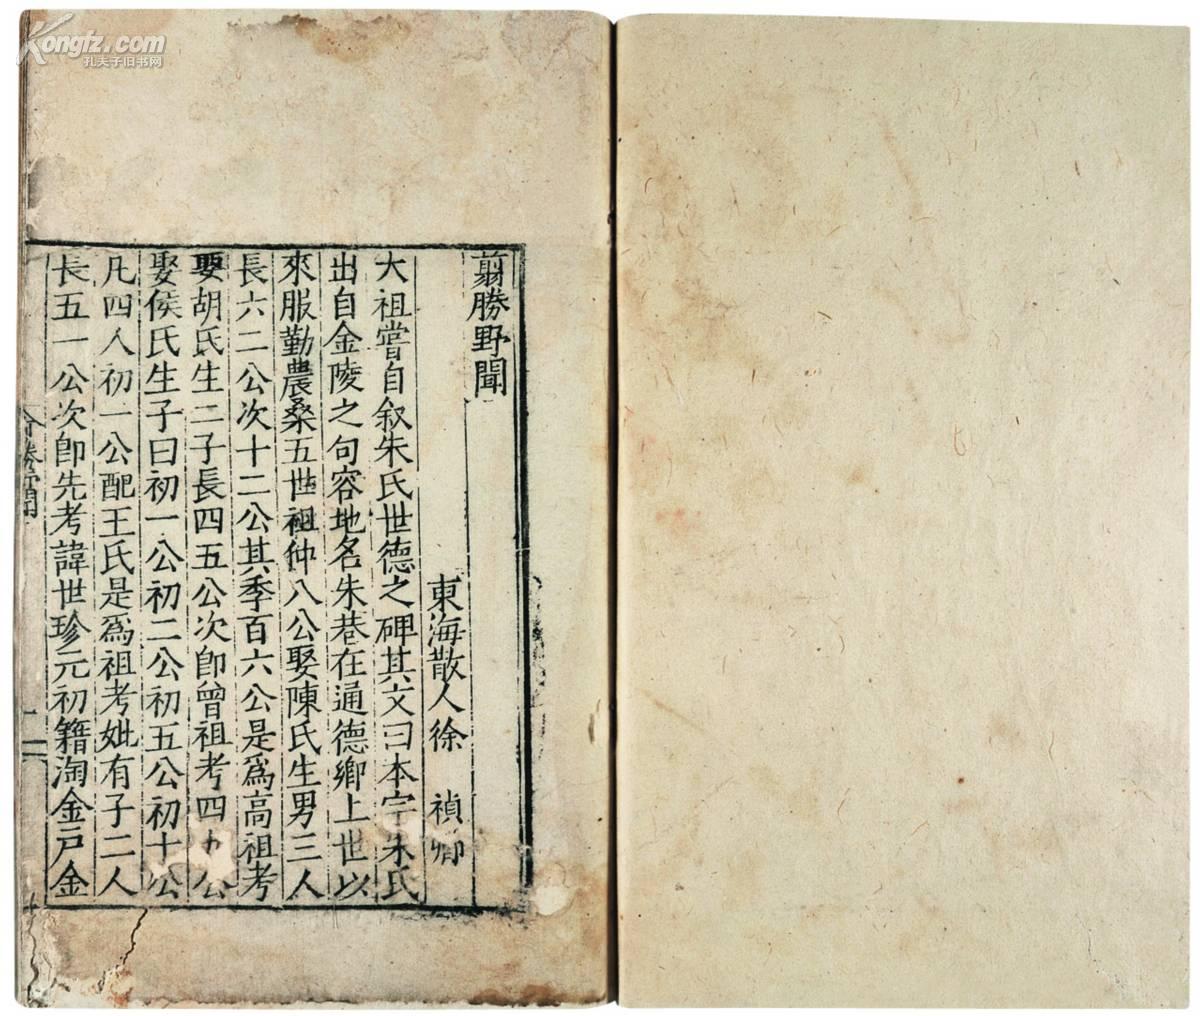 翦勝野聞
東海散人徐 禎卿
大祖嘗自叙朱氏世德之碑其文曰本宗朱氏
出自金陵之句容地名朱巷在通德鄉上世以
來服勤農桑五世祖仲八公娶陳氏生男三人
長六二公次十二公其季百六公是爲高祖考
娶胡氏生二子長四五公次卽曾祖考四九公
娶侯氏生子曰初一公初二公初五公初十公
凡四人初一公配王氏是爲祖考妣有子二人
長五一公次卽先考諱世珍元初籍淘金戶金
Kongfz.com
孔夫子旧书网